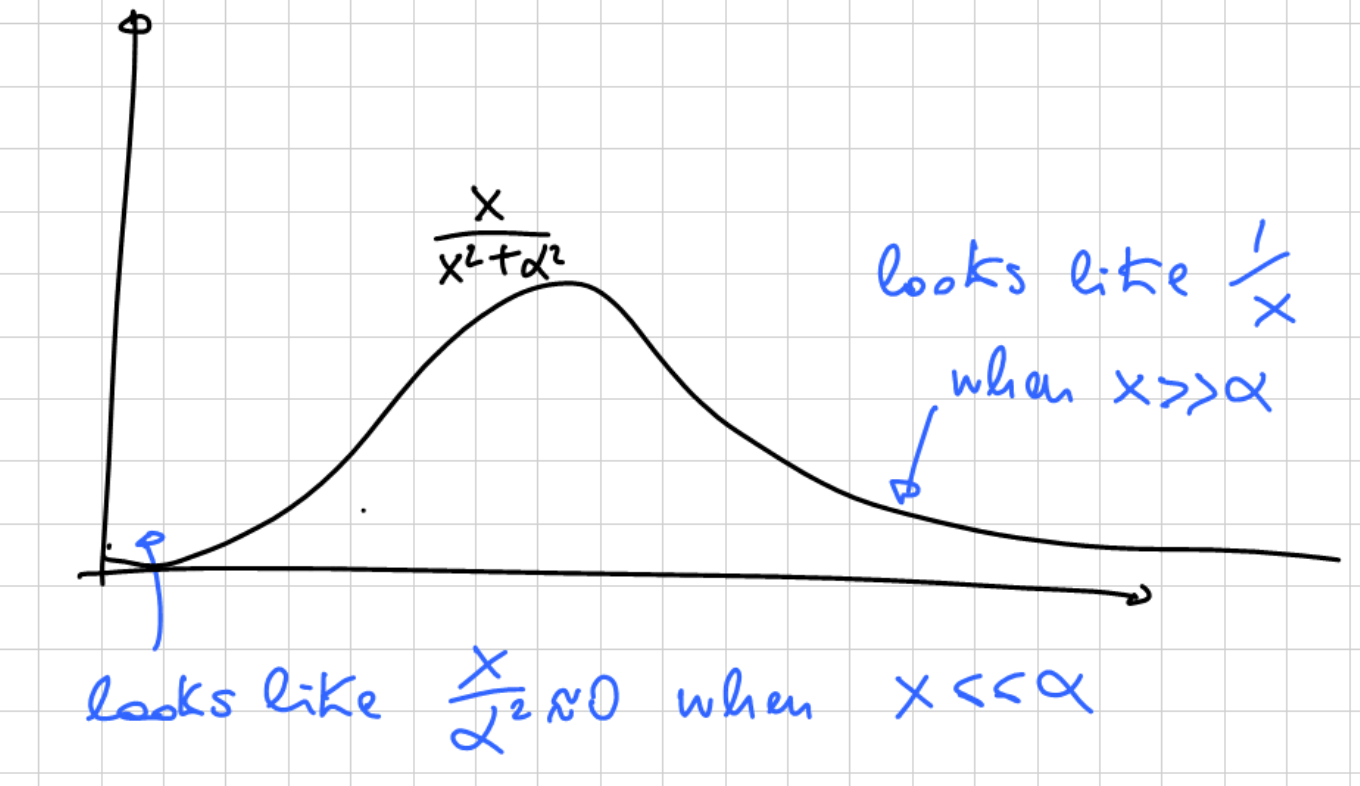 x/(x²+α²)
looks like 1/x
when x>>α
looks like x/α² ≈0 when x<<α